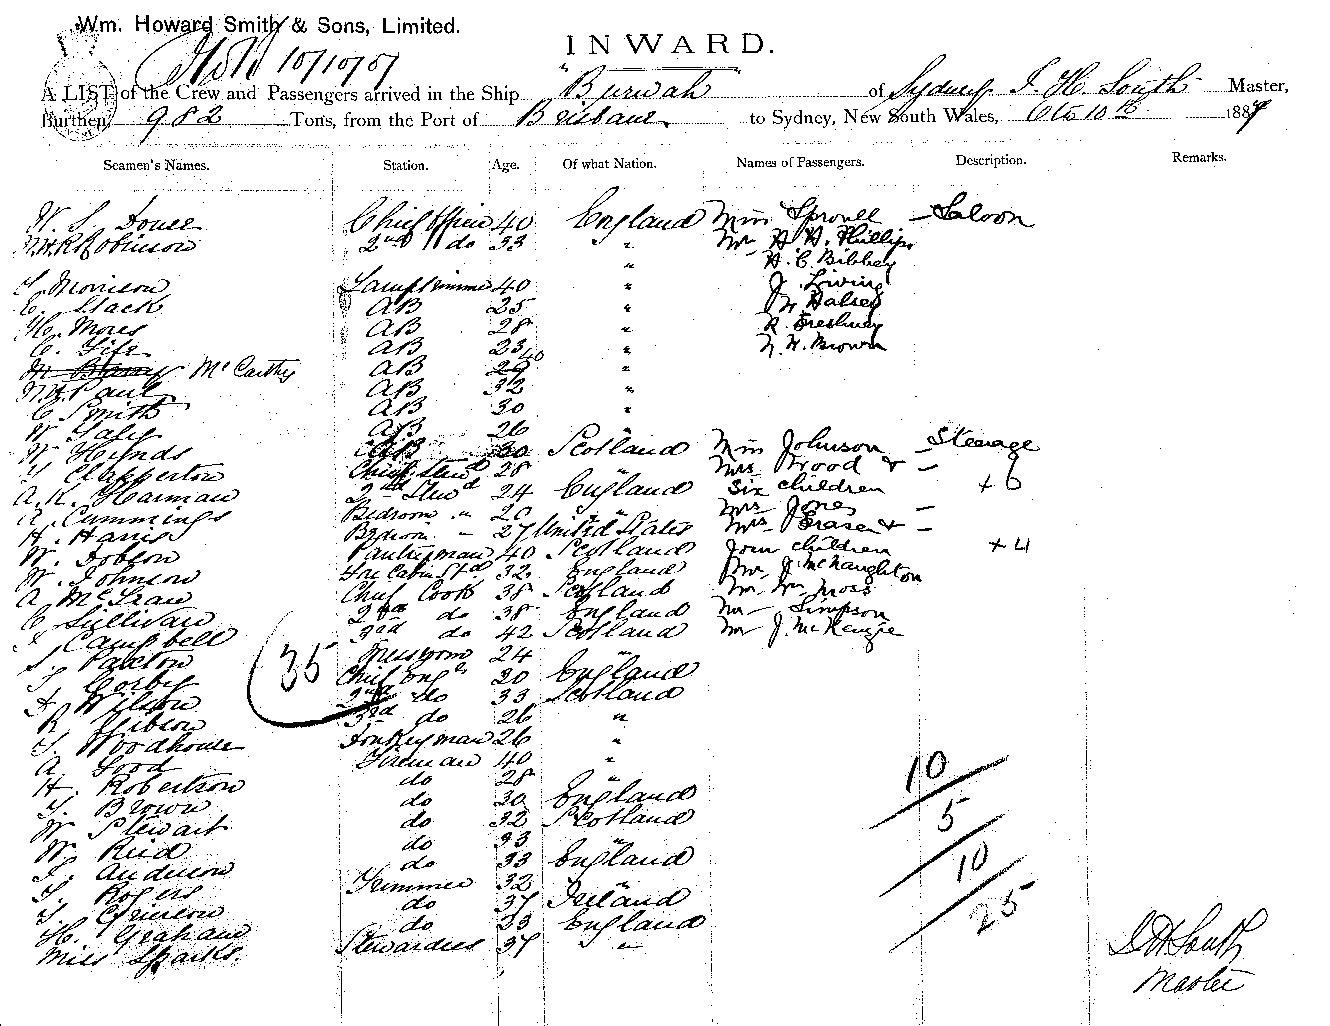 Wm. Howard Smith & Sons, Limited.
INWARD.
10/10/07
A LIST of the Crew and Passengers arrived in the Ship "Burwah" of Sydney I. H. South Master,
Burthen 982 Tons, from the Port of Brisbane to Sydney, New South Wales, Octo 10th 188
Seamen's Names. Station. Age. Of what Nation. Names of Passengers. Description. Remarks.
W. S. Chief Officer 40 England Miss Sproull - Saloon
Robinson 2nd do 33 " Mr H. H. Phillips
" H. C. Bibbey
Morrison Lamptrimmer 40 " J.
E. Slack AB 25 " Halsey
H. Mores AB 28 "
C. Fife AB 23 " Brown
McCarthy AB 29 40 "
Paul AB 32 "
C. Smith AB 30 "
W. AB 26
W. Hynds AB 30 Scotland Miss Johnson - Steerage
Clapperton Chief Stewd 28 " Mrs Brood & -
A. R. Harman 2nd Stewd 24 England Six children + 6
A. Cummings Bedroom " 20 " Mrs Jones -
H. Harris Bedroom " 27 United States Mrs Fraser & -
W. Dobson Pantryman 40 Scotland four children + 4
W. Johnson Fore Cabin Std 32 England Mr J. McNaughton
A. Chief Cook 38 Scotland Mr Wm Moss
C. Sullivan 2nd do 38 England Mr Simpson
Campbell 3rd do 42 Scotland Mr J. McKenzie
S. Paxton Messroom 24
Corby Chief Engr 20 England
Wilson 2nd do 33 Scotland
R. Gibson 3rd do 26 "
Woodhouse Donkeyman 26 "
A. Good Fireman 40 "
H. Robertson do 28 "
Brown do 30 England
W. Stewart do 32 Scotland
W. Reid do 33
Anderson do 33 England
Rogers Trimmer 32 "
Grierson do 37 Ireland
H. Graham do 23 England
Miss Sparks Stewardess 37 "
35
10
5
10
25
I H South
Master